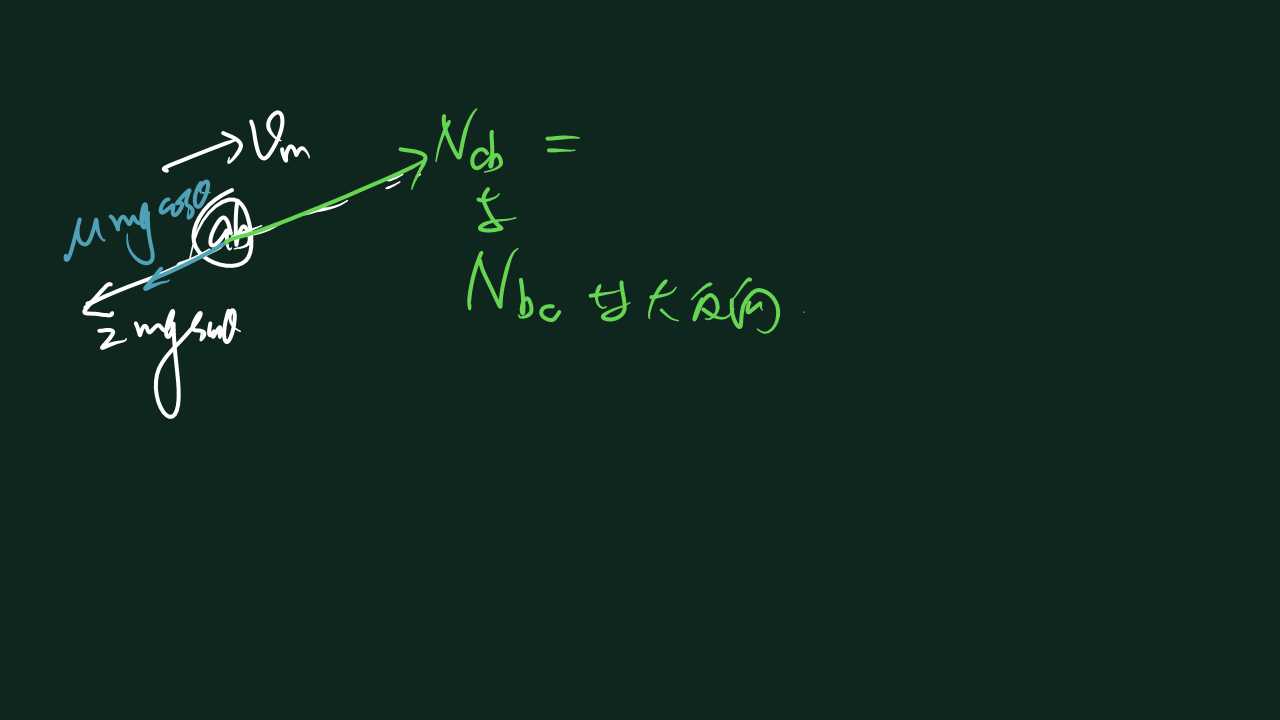 Vm
μmgcosθ
ab
2mgsinθ
Ncb =
与
Nbc 等大反向